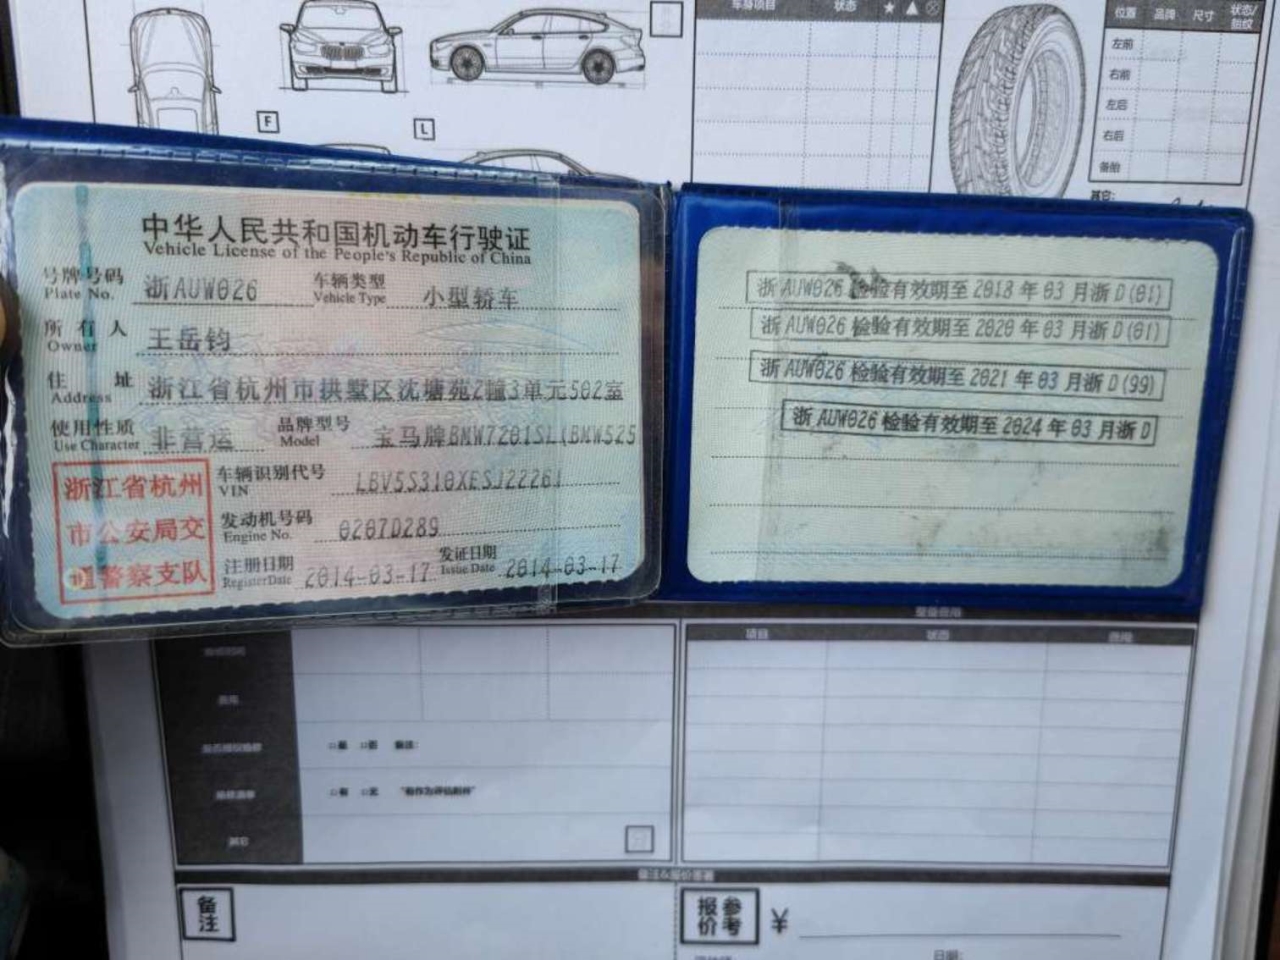 车身项目 状态 ★ ▲
位置 品牌 尺寸 状态/胎纹
左前
右前
左后
右后
备胎
其它:
F
L
中华人民共和国机动车行驶证
Vehicle License of the People's Republic of China
号牌号码 浙AUW026 车辆类型 小型轿车
Plate No. Vehicle Type
所有人 王岳钧
Owner
住址 浙江省杭州市拱墅区沈塘苑2幢3单元502室
Address
使用性质 非营运 品牌型号 宝马牌BMW7201SL(BMW525
Use Character Model
浙江省杭州
市公安局交
通警察支队
车辆识别代号 LBV5S310XESJ22261
VIN
发动机号码 0207D289
Engine No.
注册日期 2014-03-17 发证日期 2014-03-17
Register Date Issue Date
浙AUW026检验有效期至2018年03月浙D(01)
浙AUW026检验有效期至2020年03月浙D(01)
浙AUW026检验有效期至2021年03月浙D(99)
浙AUW026检验有效期至2024年03月浙D
项目 状态
□是 □否 备注:
□有 □无
其它
备注
参考报价 ¥
日期: